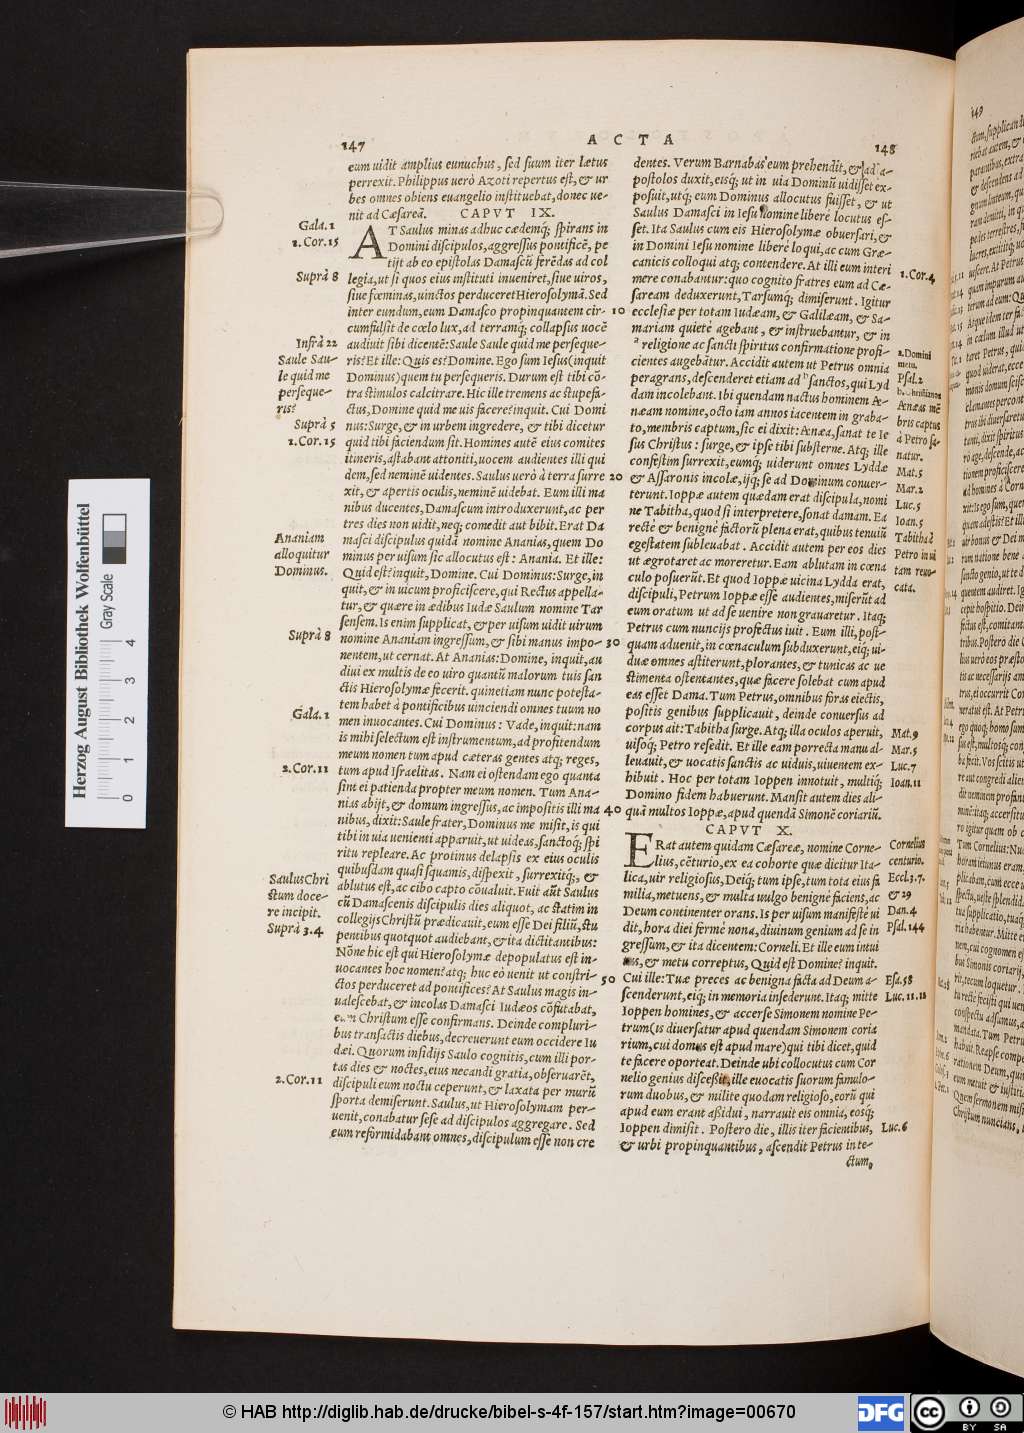 147 ACTA 148
eum uidit amplius eunuchus, sed suum iter lætus
perrexit. Philippus uerò Azoti repertus est, & ur
bes omnes obiens euangelio instituebat, donec ue-
nit ad Cæsareã. CAPVT IX.
Gala. 1
1. Cor. 15
AT Saulus minas adhuc cædemq́; spirans in
Domini discipulos, aggressus pontificẽ, pe
tijt ab eo epistolas Damascũ ferẽdas ad col
Suprà 8
legia, ut si quos eius instituti inueniret, siue uiros,
siue fœminas, uinctos perduceret Hierosolymã. Sed
inter eundum, eum Damasco propinquantem cir- 10
cumfulsit de cœlo lux, ad terramq́; collapsus uocẽ
Infrà 22
audiuit sibi dicentẽ: Saule Saule quid me perseque-
Saule Sau-
le quid me
perseque-
ris?
ris? Et ille: Quis es? Domine. Ego sum Iesus (inquit
Dominus) quem tu persequeris. Durum est tibi cõ-
tra stimulos calcitrare. Hic ille tremens ac stupefa-
ctus, Domine quid me uis facere? inquit. Cui Domi
Suprà 5
nus: Surge, & in urbem ingredere, & tibi dicetur
1. Cor. 15
quid tibi faciendum sit. Homines autẽ eius comites
itineris, astabant attoniti, uocem audientes illi qui
dem, sed neminẽ uidentes. Saulus uerò à terra surre 20
xit, & apertis oculis, neminẽ uidebat. Eum illi ma
nibus ducentes, Damascum introduxerunt, ac per
tres dies non uidit, neq; comedit aut bibit. Erat Da
Ananiam
alloquitur
Dominus.
masci discipulus quidã nomine Ananias, quem Do
minus per uisum sic allocutus est: Anania. Et ille:
Quid est? inquit, Domine. Cui Dominus: Surge, in
quit, & in uicum proficiscere, qui Rectus appella-
tur, & quære in ædibus Iudæ Saulum nomine Tar
sensem. Is enim supplicat, & per uisum uidit uirum
Suprà 8
nomine Ananiam ingressum, & sibi manus impo- 30
nentem, ut cernat. At Ananias: Domine, inquit, au
diui ex multis de eo uiro quantũ malorum tuis san
ctis Hierosolymæ fecerit. quinetiam nunc potesta-
tem habet à pontificibus uinciendi omnes tuum no
Gala. 1
men inuocantes. Cui Dominus: Vade, inquit: nam
is mihi selectum est instrumentum, ad profitendum
meum nomen tum apud cæteras gentes atq; reges,
2. Cor. 11
tum apud Israelitas. Nam ei ostendam ego quanta
sint ei patienda propter meum nomen. Tum Ana-
nias abijt, & domum ingressus, ac impositis illi ma 40
nibus, dixit: Saule frater, Dominus me misit, is qui
tibi in uia uenienti apparuit, ut uideas, sanctoq́; spi
ritu repleare. Ac protinus delapsis ex eius oculis
quibusdam quasi squamis, dispexit, surrexitq́;, &
Saulus Chri
stum doce-
re incipit.
ablutus est, ac cibo capto cõualuit. Fuit aũt Saulus
cũ Damascenis discipulis dies aliquot, ac statim in
collegijs Christũ prædicauit, eum esse Dei filiũ, stu
Suprà 3. 4
pentibus quotquot audiebant, & ita dictitantibus:
Nõne hic est qui Hierosolymæ depopulatus est in-
uocantes hoc nomen? atq; huc eò uenit ut constri- 50
ctos perduceret ad pontifices? At Saulus magis in-
ualescebat, & incolas Damasci Iudæos cõfutabat,
Christum esse confirmans. Deinde compluri-
bus transactis diebus, decreuerunt eum occidere Iu
dæi. Quorum insidijs Saulo cognitis, cum illi por-
tas dies & noctes, eius necandi gratia, obseruarẽt,
2. Cor. 11
discipuli eum noctu ceperunt, & laxata per murũ
sporta demiserunt. Saulus, ut Hierosolymam per-
uenit, conabatur sese ad discipulos aggregare. Sed
eum reformidabant omnes, discipulum esse non cre
dentes. Verum Barnabas eum prehendit, & ad a-
postolos duxit, eisq́; ut in uia Dominũ uidisset ex-
posuit, utq́; eum Dominus allocutus fuisset, & ut
Saulus Damasci in Iesu nomine liberè locutus es-
set. Ita Saulus cum eis Hierosolymæ obuersari, &
in Domini Iesu nomine liberè loqui, ac cum Græ-
canicis colloqui atq; contendere. At illi eum interi
1. Cor. 4
mere conabantur: quo cognito fratres eum ad Cæ-
saream deduxerunt, Tarsumq́; dimiserunt. Igitur
ecclesiæ per totam Iudæam, & Galilæam, & Sa-
mariam quietè agebant, & instruebantur, & in
ª religione ac sancti spiritus confirmatione profi-
a. Domini
metu.
cientes augebãtur. Accidit autem ut Petrus omnia
Psal. 2
peragrans, descenderet etiam ad ᵇ sanctos, qui Lyd
b. Christianos
dam incolebant. Ibi quendam nactus hominem Æ-
Æneas mẽ
bris captus
à Petro sa-
natur.
næam nomine, octo iam annos iacentem in graba-
to, membris captum, sic ei dixit: Ænæa, sanat te Ie
sus Christus: surge, & ipse tibi substerne. Atq; ille
confestim surrexit, eumq́; uiderunt omnes Lyddæ
Mat. 5
& Assaronis incolæ, ijq́; se ad Dominum conuer-
Mar. 2
terunt. Ioppæ autem quædam erat discipula, nomi
Luc. 5
ne Tabitha, quod si interpretere, sonat damam. Ea
Ioan. 5
rectè & benignè factorũ plena erat, quibus tenuiũ
Tabitha à
Petro in ui
tam reuo-
cata.
egestatem subleuabat. Accidit autem per eos dies
ut ægrotaret ac moreretur. Eam ablutam in cœna
culo posuerũt. Et quod Ioppæ uicina Lydda erat,
discipuli, Petrum Ioppæ esse audientes, miserũt ad
eum oratum ut ad se uenire non grauaretur. Itaq;
Petrus cum nuncijs profectus iuit. Eum illi, post-
quam aduenit, in cœnaculum subduxerunt, eiq́; ui-
duæ omnes astiterunt, plorantes, & tunicas ac ue
stimenta ostentantes, quæ facere solebat cum apud
eas esset Dama. Tum Petrus, omnibus foras eiectis,
positis genibus supplicauit, deinde conuersus ad
corpus ait: Tabitha surge. Atq; illa oculos aperuit,
Mat. 9
uisoq́; Petro resedit. Et ille eam porrecta manu al-
Mar. 5
leuauit, & uocatis sanctis ac uiduis, uiuentem ex-
Luc. 7
hibuit. Hoc per totam Ioppen innotuit, multiq́;
Ioan. 11
Domino fidem habuerunt. Mansit autem dies ali-
quã multos Ioppæ, apud quendã Simonẽ coriariũ.
CAPVT X.
Cornelius
centurio.
ERat autem quidam Cæsareæ, nomine Corne-
lius, cẽturio, ex ea cohorte quæ dicitur Ita-
Eccl. 3. 7.
& 29
lica, uir religiosus, Deiq́; tum ipse, tum tota eius fa
milia, metuens, & multa uulgo benignè faciens, ac
Dan. 4
Deum continenter orans. Is per uisum manifestè ui
Psal. 144
dit, hora diei fermè nona, diuinum genium ad se in
gressum, & ita dicentem: Corneli. Et ille eum intui
&, metu correptus, Quid est Domine? inquit.
Esa. 58
Cui ille: Tuæ preces ac benigna facta ad Deum a-
Luc. 11. 18
scenderunt, eiq́; in memoria insederunt. Itaq; mitte
Ioppen homines, & accerse Simonem nomine Pe-
trum (is diuersatur apud quendam Simonem coria
rium, cui domus est apud mare) qui tibi dicet, quid
te facere oporteat. Deinde ubi collocutus cum Cor
nelio genius discessit, ille euocatis suorum famulo-
rum duobus, & milite quodam religioso, eorũ qui
apud eum erant assidui, narrauit eis omnia, eosq́;
Luc. 6
Ioppen dimisit. Postero die, illis iter facientibus,
& urbi propinquantibus, ascendit Petrus in te-
ctum,
149
Herzog August Bibliothek Wolfenbüttel
Gray Scale
0 1 2 3 4
© HAB http://diglib.hab.de/drucke/bibel-s-4f-157/start.htm?image=00670
DFG
cc
BY SA